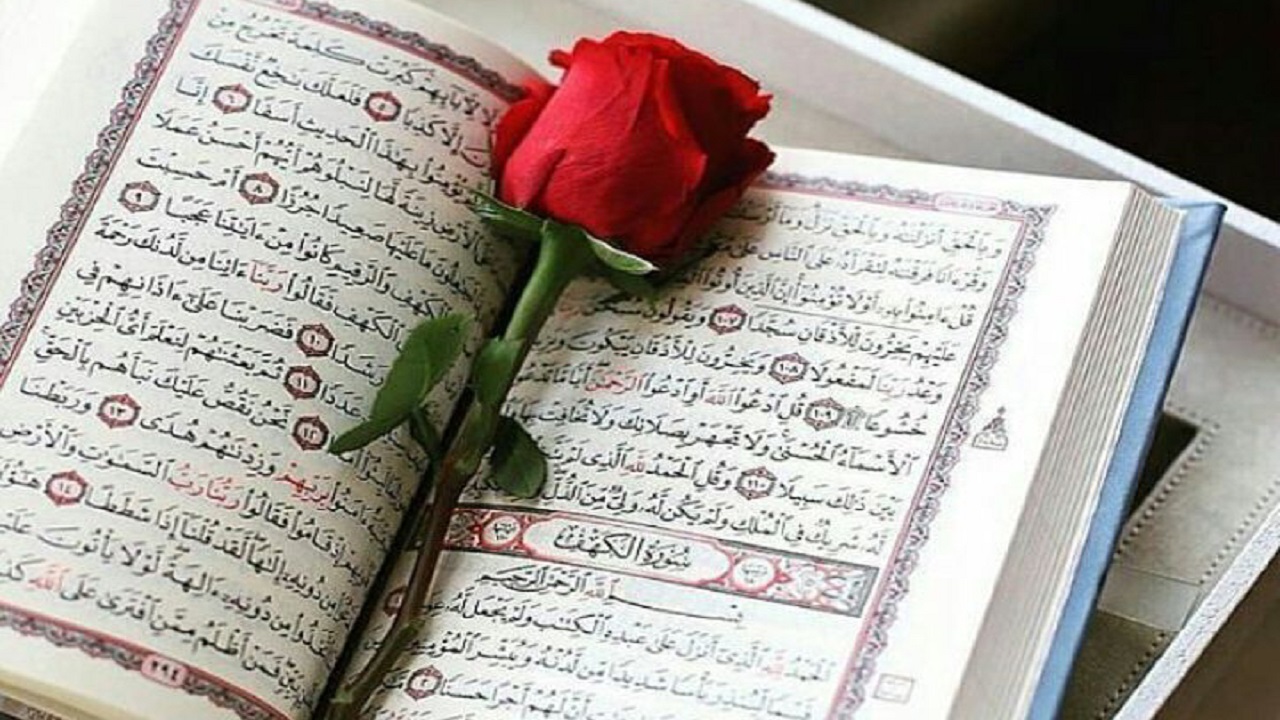 وَبِالْحَقِّ أَنزَلْنَاهُ وَبِالْحَقِّ نَزَلَ وَمَا أَرْسَلْنَاكَ
وَقُرْءَانًا فَرَقْنَاهُ لِتَقْرَأَهُ عَلَى النَّاسِ عَلَىٰ
قُلْ ءَامِنُوا بِهِ أَوْ لَا تُؤْمِنُوا إِنَّ الَّذِينَ أُوتُوا
عَلَيْهِمْ يَخِرُّونَ لِلْأَذْقَانِ سُجَّدًا ١٠٧ وَيَقُولُونَ سُبْحَانَ
وَعْدُ رَبِّنَا لَمَفْعُولًا ١٠٨ وَيَخِرُّونَ لِلْأَذْقَانِ يَبْكُونَ
خُشُوعًا ۩ ١٠٩ قُلِ ادْعُوا اللَّهَ أَوِ ادْعُوا الرَّحْمَٰنَ أَيًّا مَا
الْأَسْمَاءُ الْحُسْنَىٰ وَلَا تَجْهَرْ بِصَلَاتِكَ وَلَا تُخَافِتْ
بَيْنَ ذَٰلِكَ سَبِيلًا ١١٠ وَقُلِ الْحَمْدُ لِلَّهِ الَّذِي لَمْ
لَهُ شَرِيكٌ فِي الْمُلْكِ وَلَمْ يَكُن لَّهُ وَلِيٌّ مِّنَ الذُّلِّ
سُورَةُ الْكَهْفِ
بِسْمِ اللَّهِ الرَّحْمَٰنِ الرَّحِيمِ
الْحَمْدُ لِلَّهِ الَّذِي أَنزَلَ عَلَىٰ عَبْدِهِ الْكِتَابَ وَلَمْ يَجْعَل لَّهُ
قَيِّمًا لِّيُنذِرَ بَأْسًا شَدِيدًا مِّن لَّدُنْهُ وَيُبَشِّرَ الْمُؤْمِنِينَ
أَنَّ لَهُمْ أَجْرًا حَسَنًا ٢
وَلَا لِآبَائِهِمْ كَبُرَتْ كَلِمَةً تَخْرُجُ مِنْ
إِلَّا كَذِبًا ٥ فَلَعَلَّكَ بَاخِعٌ نَّفْسَكَ
يُؤْمِنُوا بِهَٰذَا الْحَدِيثِ أَسَفًا ٦ إِنَّا
عَلَى الْأَرْضِ زِينَةً لَّهَا لِنَبْلُوَهُمْ أَيُّهُمْ أَحْسَنُ عَمَلًا
لَجَاعِلُونَ مَا عَلَيْهَا صَعِيدًا جُرُزًا ٨ أَمْ حَسِبْتَ
الْكَهْفِ وَالرَّقِيمِ كَانُوا مِنْ ءَايَاتِنَا عَجَبًا ٩
الْكَهْفِ فَقَالُوا رَبَّنَا ءَاتِنَا مِن لَّدُنكَ رَحْمَةً
رَشَدًا ١٠ فَضَرَبْنَا عَلَىٰ ءَاذَانِهِمْ فِي
عَدَدًا ١١ ثُمَّ بَعَثْنَاهُمْ لِنَعْلَمَ أَيُّ الْحِزْبَيْنِ
١٢ نَحْنُ نَقُصُّ عَلَيْكَ نَبَأَهُم بِالْحَقِّ
ءَامَنُوا بِرَبِّهِمْ وَزِدْنَاهُمْ هُدًى ١٣ وَرَبَطْنَا
إِذْ قَامُوا فَقَالُوا رَبُّنَا رَبُّ السَّمَاوَاتِ وَالْأَرْضِ
مِن دُونِهِ إِلَٰهًا لَّقَدْ قُلْنَا إِذًا شَطَطًا ١٤ هَٰؤُلَاءِ
اتَّخَذُوا مِن دُونِهِ ءَالِهَةً لَّوْلَا يَأْتُونَ عَلَيْهِم
فَمَنْ أَظْلَمُ مِمَّنِ افْتَرَىٰ عَلَى اللَّهِ كَذِبًا
٢٩٤